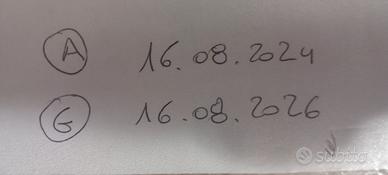 A 16.08.2024
G 16.08.2026
subito